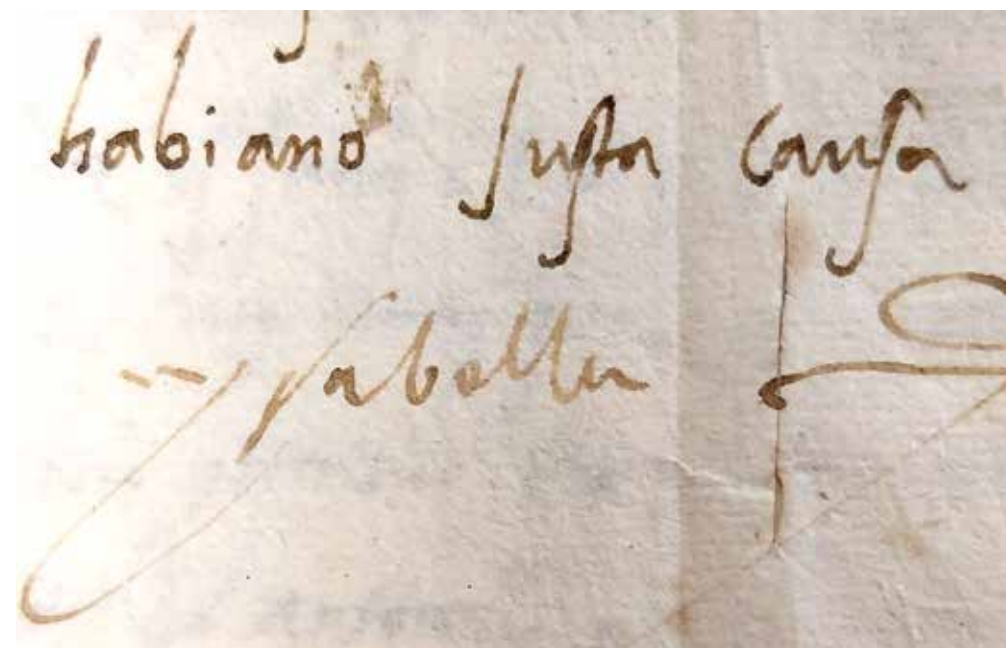 habiano Justa causa
ysabella